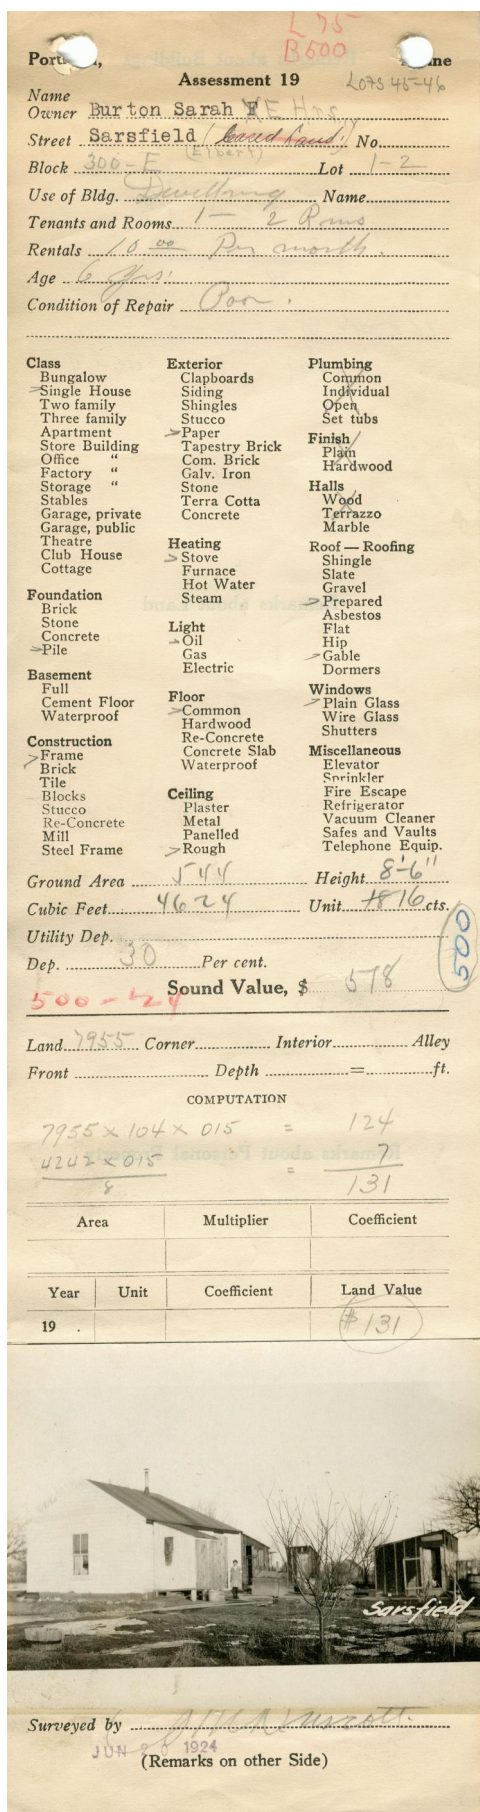 L 75
B500
Portland, Maine
Assessment 19
Lots 45-46
Name
Owner Burton Sarah F E Hrs.
Street Sarsfield No.
(Elbert)
Block 300-E Lot 1-2
Use of Bldg. Dwelling Name
Tenants and Rooms 1 — 2 Rms
Rentals 10 00 Per month.
Age 6 yrs.
Condition of Repair Poor.
Class
Bungalow
Single House
Two family
Three family
Apartment
Store Building
Office "
Factory "
Storage "
Stables
Garage, private
Garage, public
Theatre
Club House
Cottage
Foundation
Brick
Stone
Concrete
Pile
Basement
Full
Cement Floor
Waterproof
Construction
Frame
Brick
Tile
Blocks
Stucco
Re-Concrete
Mill
Steel Frame
Exterior
Clapboards
Siding
Shingles
Stucco
Paper
Tapestry Brick
Com. Brick
Galv. Iron
Stone
Terra Cotta
Concrete
Heating
Stove
Furnace
Hot Water
Steam
Light
Oil
Gas
Electric
Floor
Common
Hardwood
Re-Concrete
Concrete Slab
Waterproof
Ceiling
Plaster
Metal
Panelled
Rough
Plumbing
Common
Individual
Open
Set tubs
Finish
Plain
Hardwood
Halls
Wood
Terrazzo
Marble
Roof — Roofing
Shingle
Slate
Gravel
Prepared
Asbestos
Flat
Hip
Gable
Dormers
Windows
Plain Glass
Wire Glass
Shutters
Miscellaneous
Elevator
Sprinkler
Fire Escape
Refrigerator
Vacuum Cleaner
Safes and Vaults
Telephone Equip.
Ground Area 544 Height 8'-6"
Cubic Feet 4624 Unit 18 16 cts.
Utility Dep.
500
Dep. 30 Per cent.
Sound Value, $ 578
500 - 24
Land 7955 Corner Interior Alley
Front Depth = ft.
COMPUTATION
7955 x 104 x 015 = 124
4242 x 015 = 7
8 131
Area Multiplier Coefficient
Year Unit Coefficient Land Value
19 . $131
Sarsfield
Surveyed by
JUN 1924
(Remarks on other Side)